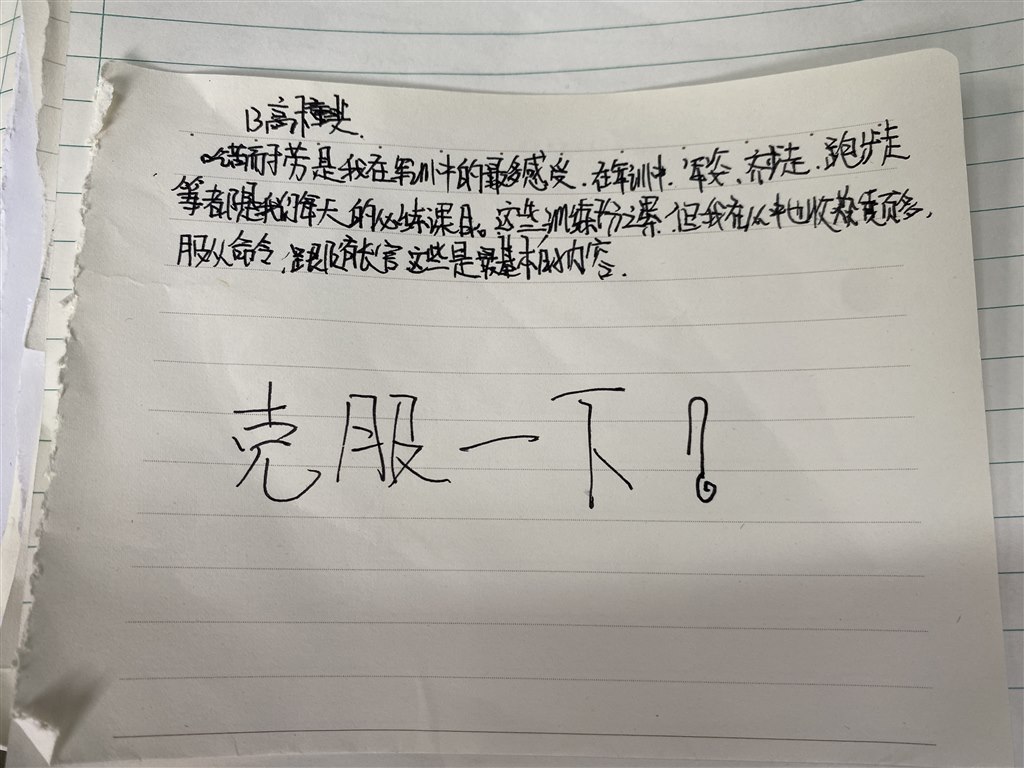 13高
苦而于劳是我在军训中的最多感受.在军训中.军姿、齐步走.跑步走
等都是我们每天的必练课目。这些训练十分之累.但我在从中也收获颇多,
服从命令,跟服从长官这些是最基本的内容.
克服一下!